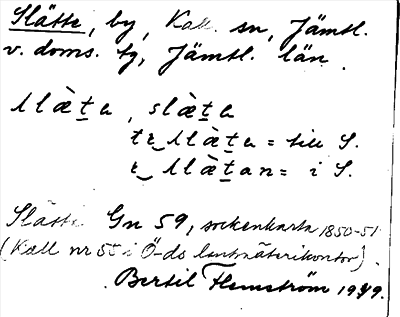 Slätte, by, Kall sn, Jämtl.
v. doms. tg, Jämtl. län.
slæ̀t̲a, slæ̀t̲a
te‿slæ̀t̲a = till S.
e‿slæ̀t̲an = i S.
Slätte Gn 59, sockenkarta 1850-51
(Kall nr 55 i Ö-ds lantmäterikontor).
Bertil Flemström 1949.